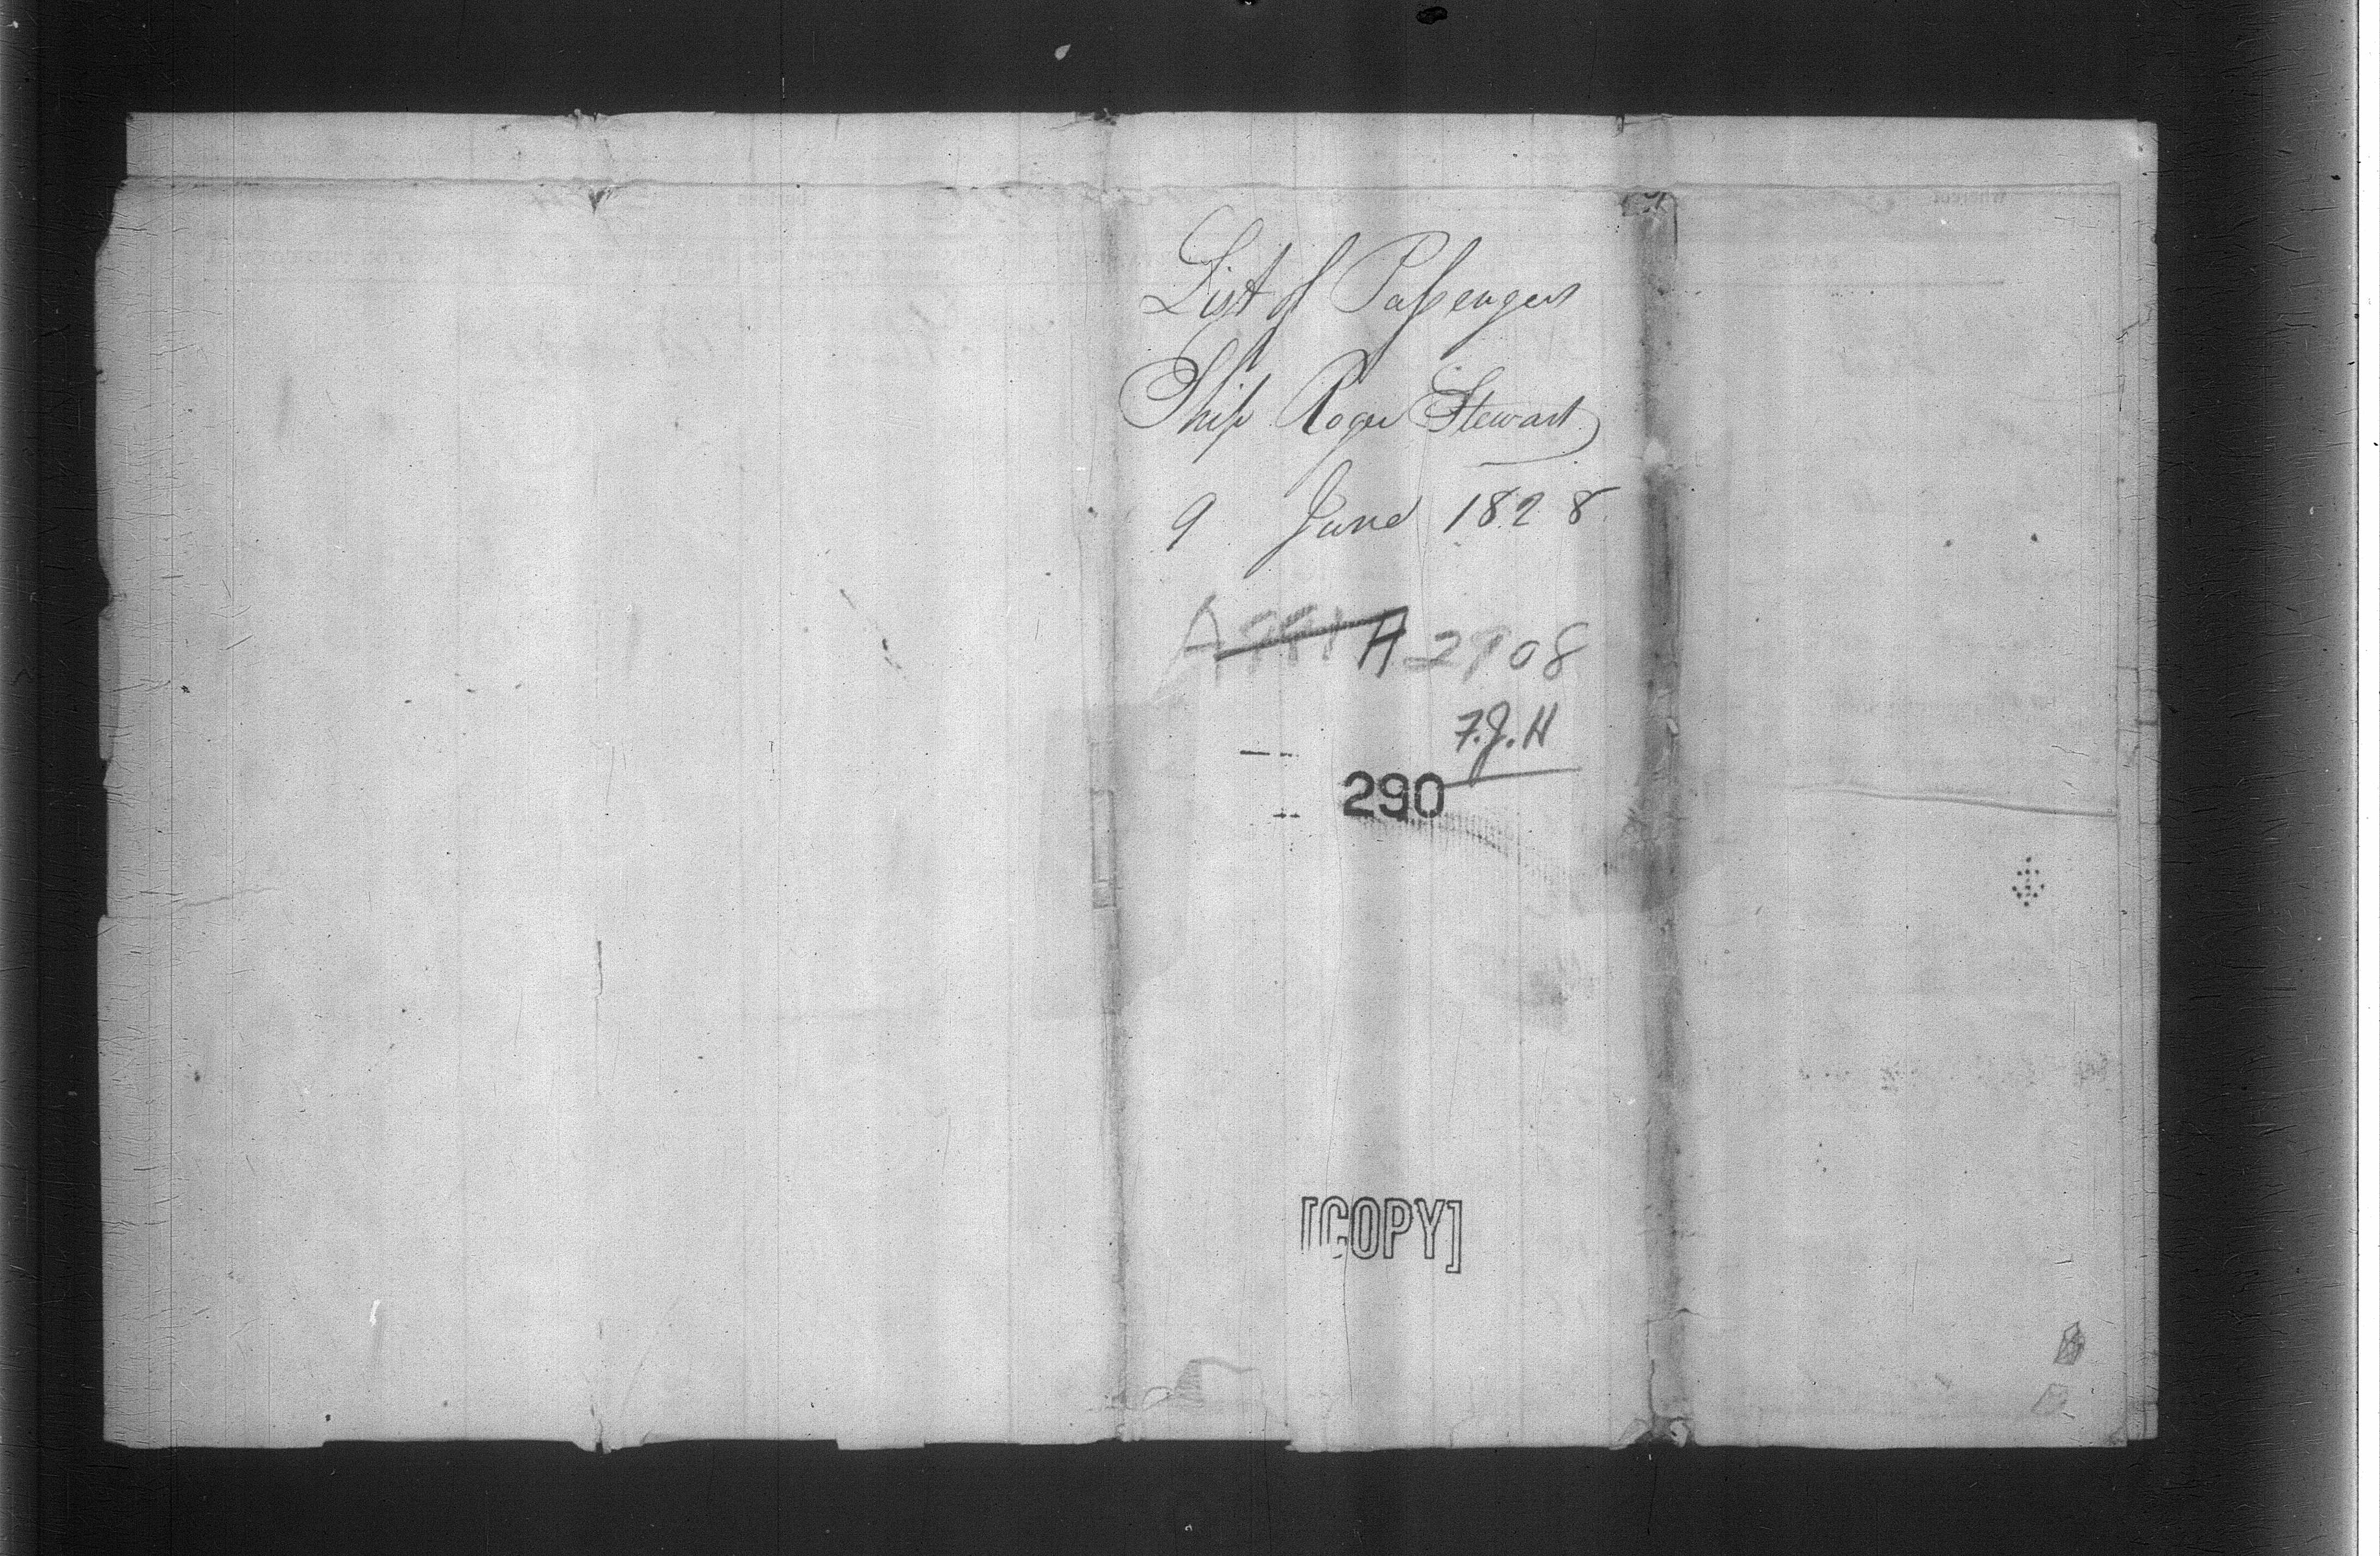 List of Passengers
Ship Roger Stewart
9 June 1828
A 2908
F.J.H
290
[COPY]